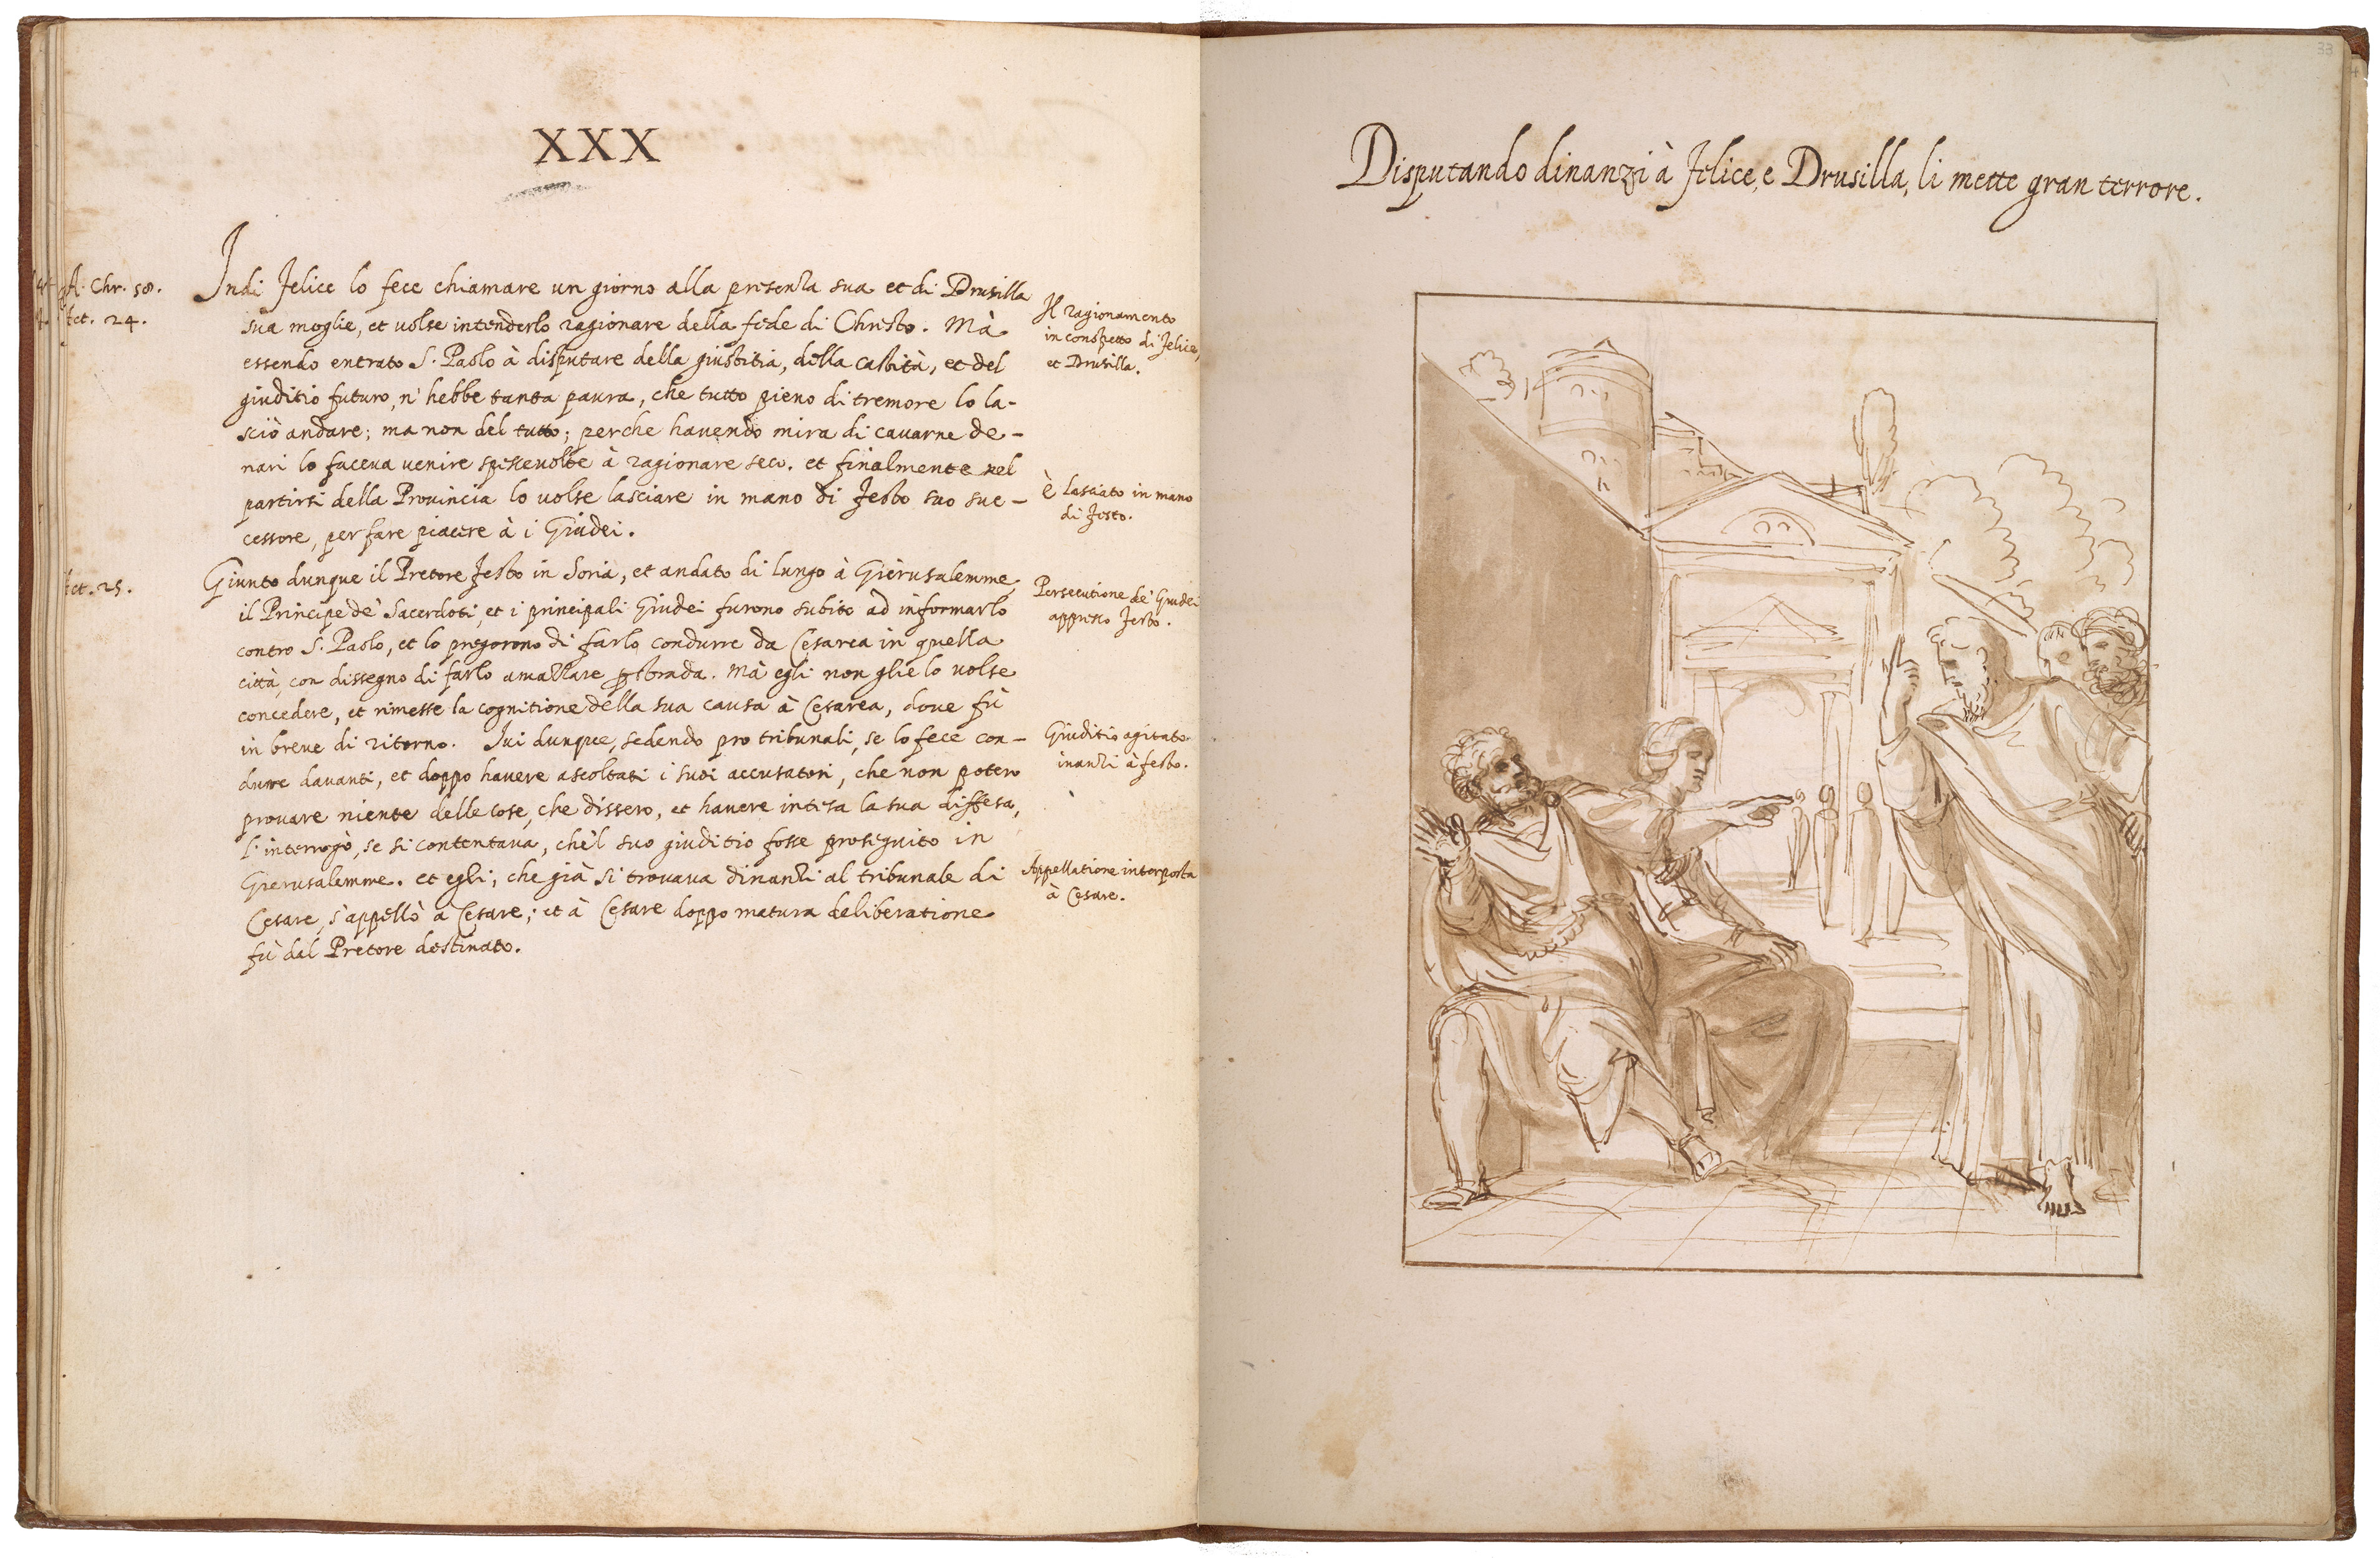 XXX
A. Chr. 58.
Act. 24.
Indi Felice lo fece chiamare un giorno alla presenza sua et di Drusilla
sua moglie, et uolse intenderlo ragionare della fede di Christo. Mà
essendo entrato S. Paolo à disputare della giustitia, della castità, et del
giuditio futuro, n'hebbe tanta paura, che tutto pieno di tremore lo la-
sciò andare; ma non del tutto; perche hauendo mira di cauarne de-
nari lo faceua uenire spesseuolte à ragionare seco. et finalmente nel
partirsi della Prouincia lo uolse lasciare in mano di Festo suo suc-
cessore, per fare piacere à i Giudei.
Il ragionamento
in conspetto di Felice,
et Drusilla.
È lasciato in mano
di Festo.
Act. 25.
Giunto dunque il Pretore Festo in Soria, et andato di lungo à Gierusalemme,
il Principe de' Sacerdoti, et i principali Giudei furono subito ad informarlo
contro S. Paolo, et lo pregorono di farlo condurre da Cesarea in quella
città, con dissegno di farlo amazzare p strada. Mà egli non glie lo uolse
concedere, et rimesse la cognitione della sua causa à Cesarea, doue fù
in breue di ritorno. Iui dunque, sedendo pro tribunali, se lo fece con-
durre dauanti, et doppo hauere ascoltati i suoi accusatori, che non potero
prouare niente delle cose, che dissero, et hauere intesa la sua diffesa,
l'interrogò, se si contentaua, che'l suo giuditio fosse proseguito in
Gierusalemme. et egli, che già si trouaua dinanzi al tribunale di
Cesare, s'appellò à Cesare; et à Cesare doppo matura deliberatione
fù dal Pretore destinato.
Persecutione de' Giudei
appresso Festo.
Giuditio agitato
inanzi à Festo.
Appellatione interposta
à Cesare.
33
Disputando dinanzi à Felice, e Drusilla, li mette gran terrore.